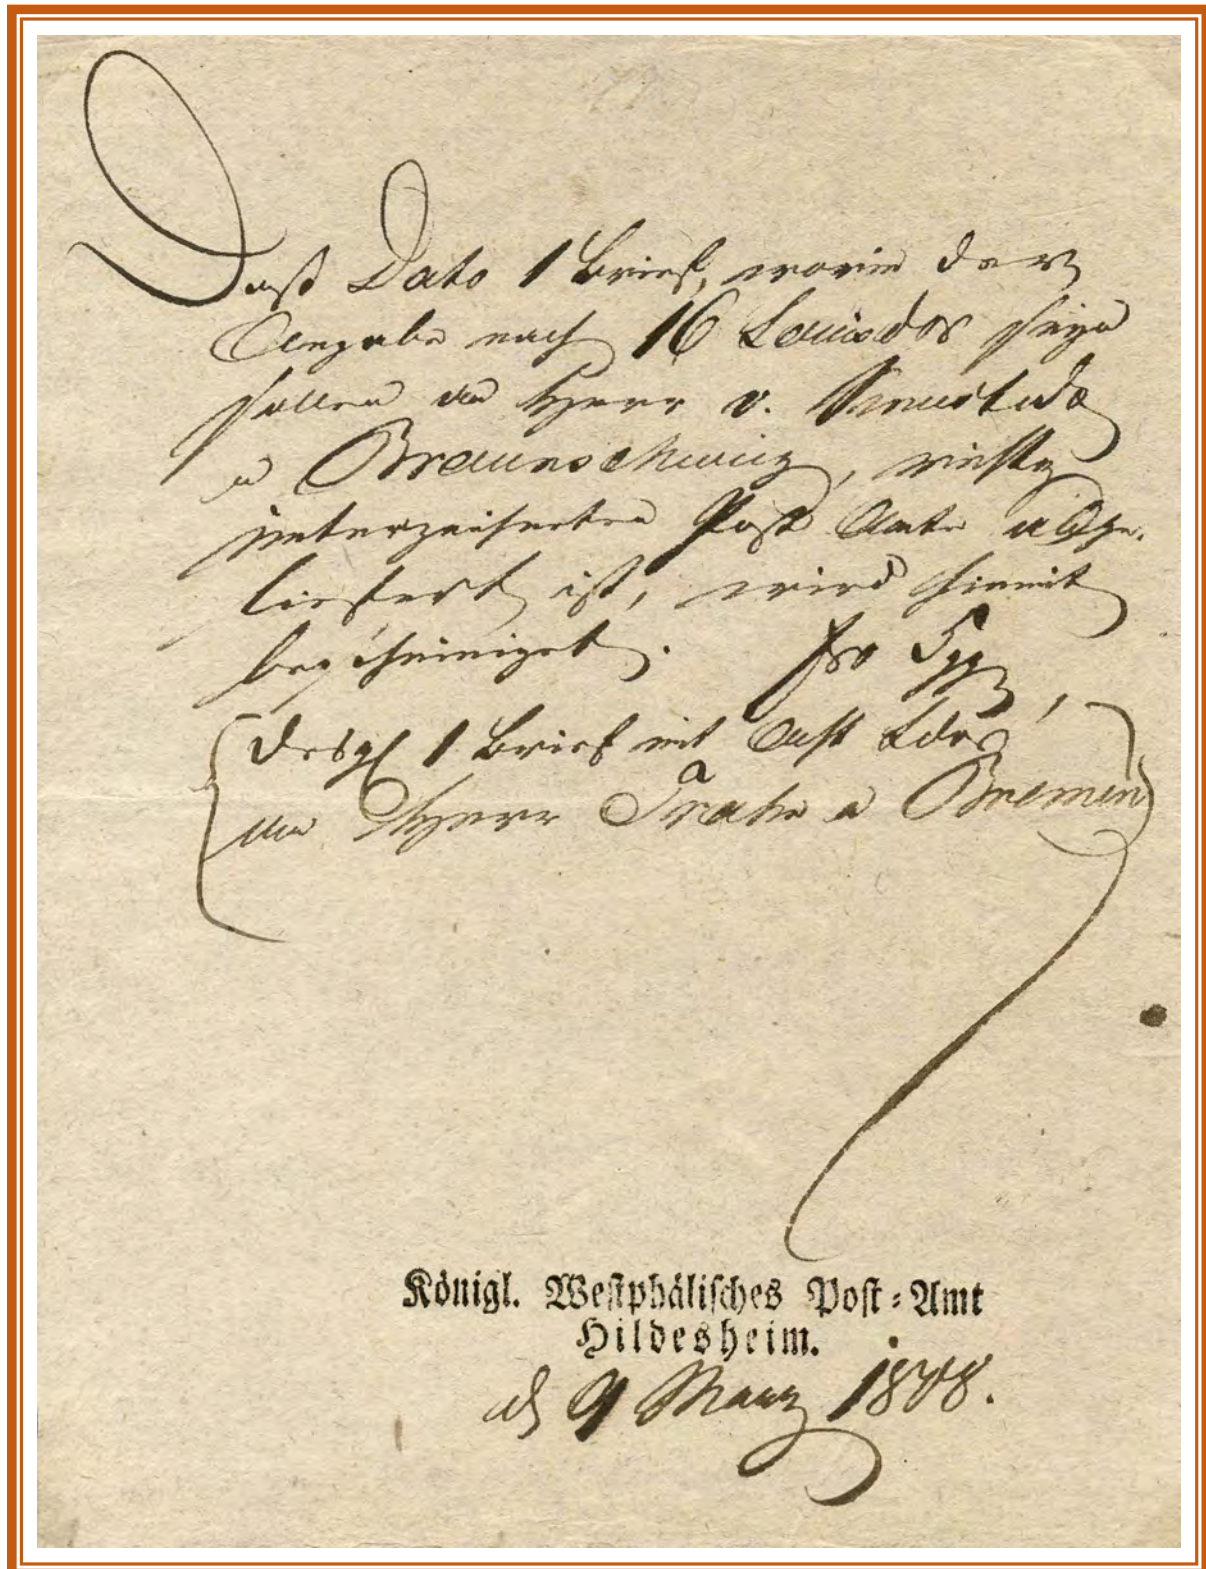 Daß Dato 1 Brief, worin der
Angabe nach 16 Louisdor seyn
sollen an Herr v.
a Braunschweig, richtig
unterzeichneten Post Amte abge-
liefert ist, wird hiermit
bescheiniget.
desgl 1 Brief mit Ldor
an Herr a Bremen
Königl. Westphälisches Post-Amt
Hildesheim.
d 9 Marz 1808.